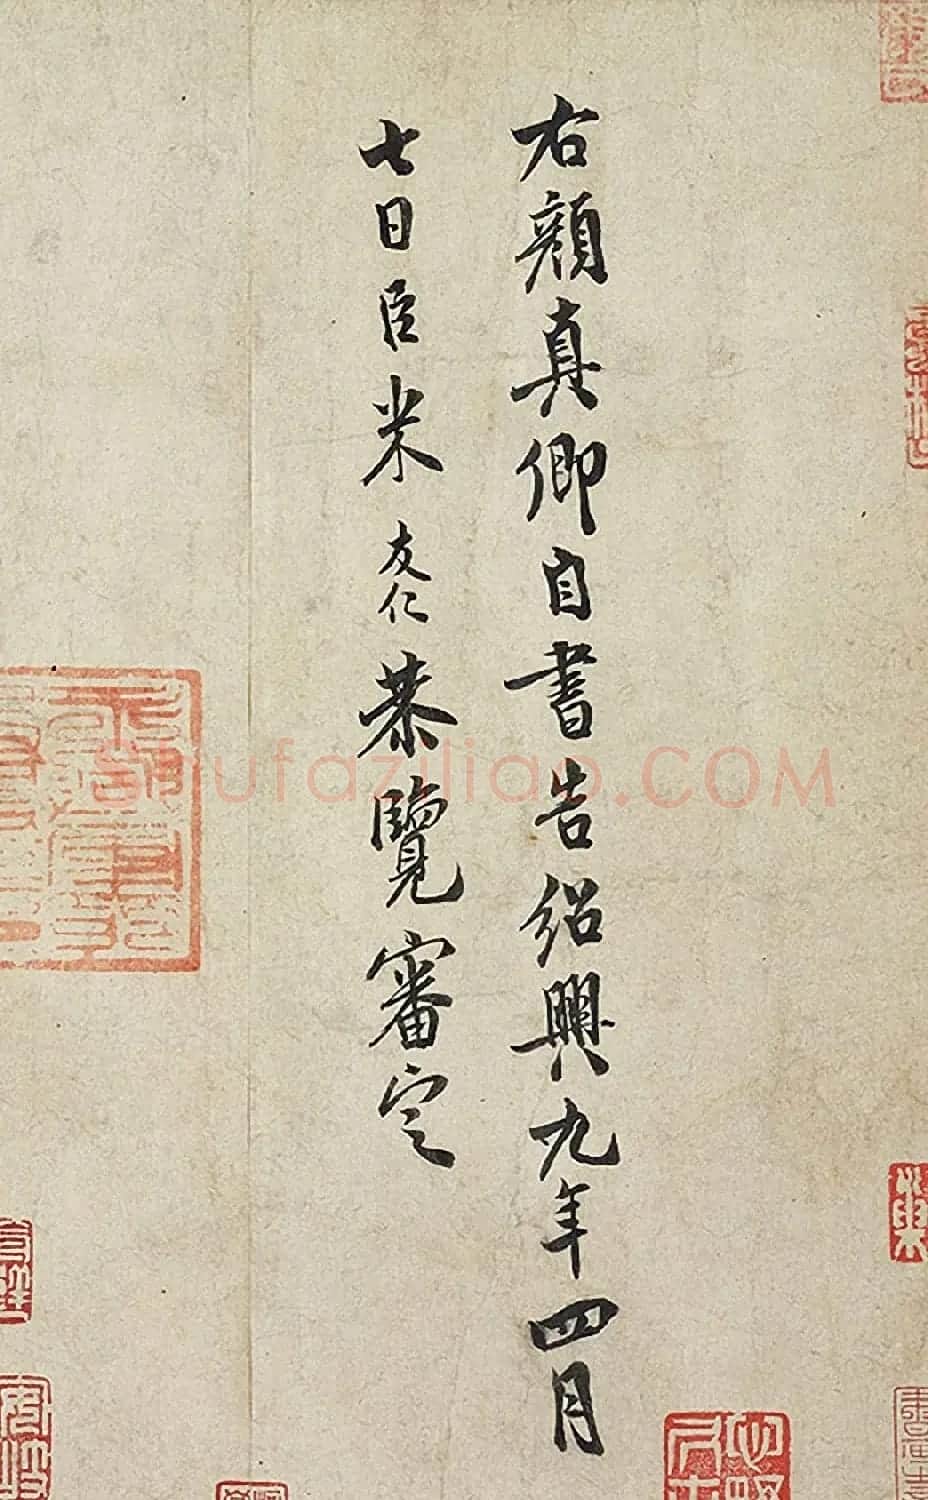 右顏真卿自書告紹興九年四月
七日臣米友仁恭覽審定
Shufaziliao.COM